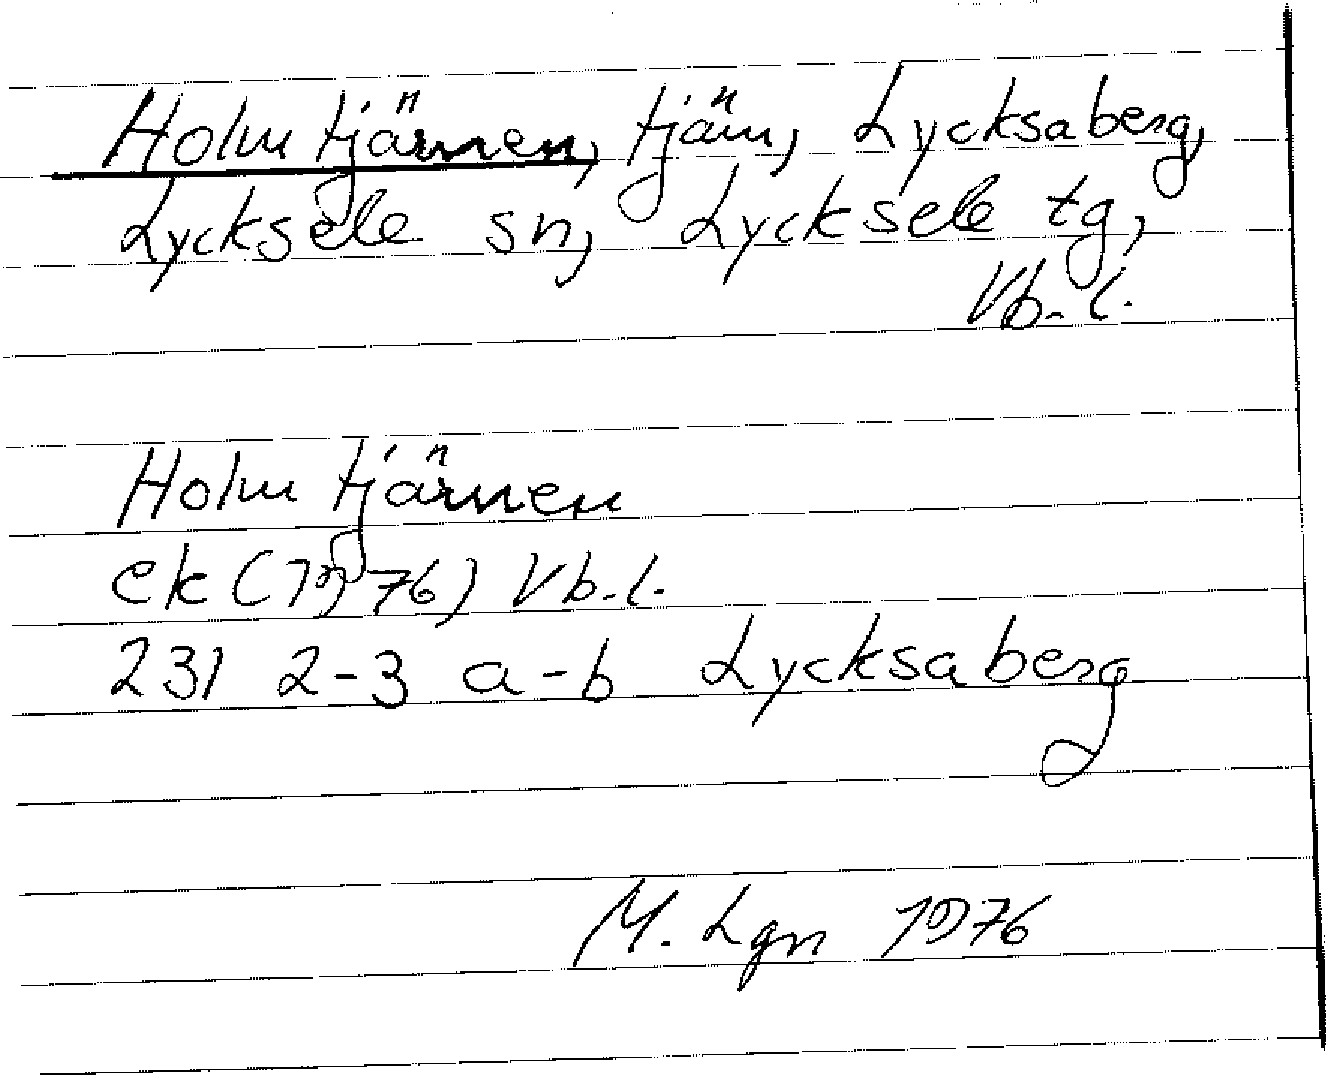 Holmtjärnen, tjärn, Lycksaberg,
Lycksele sn, Lycksele tg,
Vb. l.
Holmtjärnen
ek (1976) Vb. l.
231 2-3 a-b Lycksaberg
M. Lgn 1976